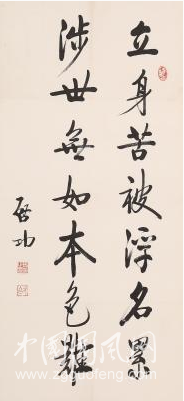 立身苦被浮名累
涉世無如本色難
啟功
中国国风网
www.zgguofeng.com